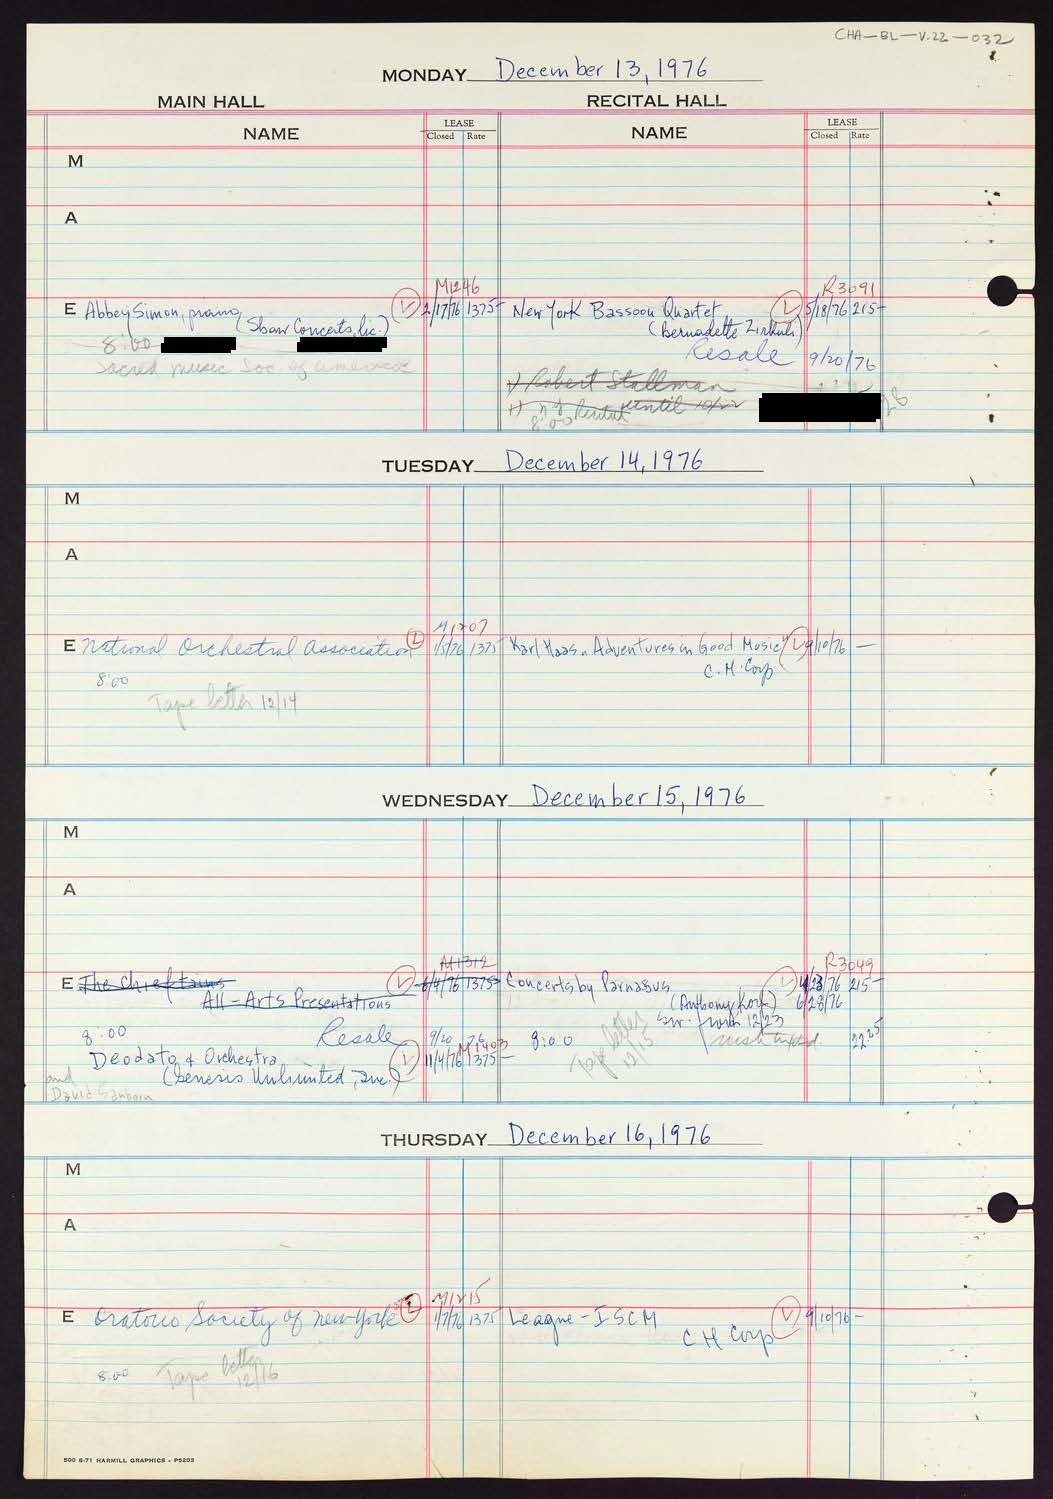 CHA-BL-V.22-032
MONDAY December 13, 1976
MAIN HALL RECITAL HALL
NAME LEASE Closed Rate NAME LEASE Closed Rate
M
A
M1246 R3091
E Abbey Simon, piano L 2/17/76 1375- New York Bassoon Quartet L 5/18/76 215-
(Shaw Concerts, Inc.) (Bernadette Zirkuli)
8:00 Resale 9/20/76
Sacred Music Soc. of America
1) Robert Stallman
1) NY Recital until 10/22
8:00 28
TUESDAY December 14, 1976
M
A
M1207
E National Orchestral Association L 1/5/76 1375 Karl Haas "Adventures in Good Music" L 9/10/76 -
C.H. Corp
8:00
Tape letter 12/14
WEDNESDAY December 15, 1976
M
A
M1312 R3049
E The Chieftains L 6/4/76 1375- Concerts by Parnassus L 4/23/76 215-
All-Arts Presentations (Anthony Korf) 6/28/76
sw. from 12/23
8:00 Resale 9/20 76 8:00 Tape letter 12/15 22.25
M1403
Deodato & Orchestra L 11/4/76 1375-
(Genesis Unlimited, Inc.)
and
David Sanborn
THURSDAY December 16, 1976
M
A
M1215
E Oratorio Society of New York L 1/7/76 1375 League-ISCM L 9/10/76-
C H Corp
8:00 Tape letter 12/16
500 6-71 HARMILL GRAPHICS - P5203